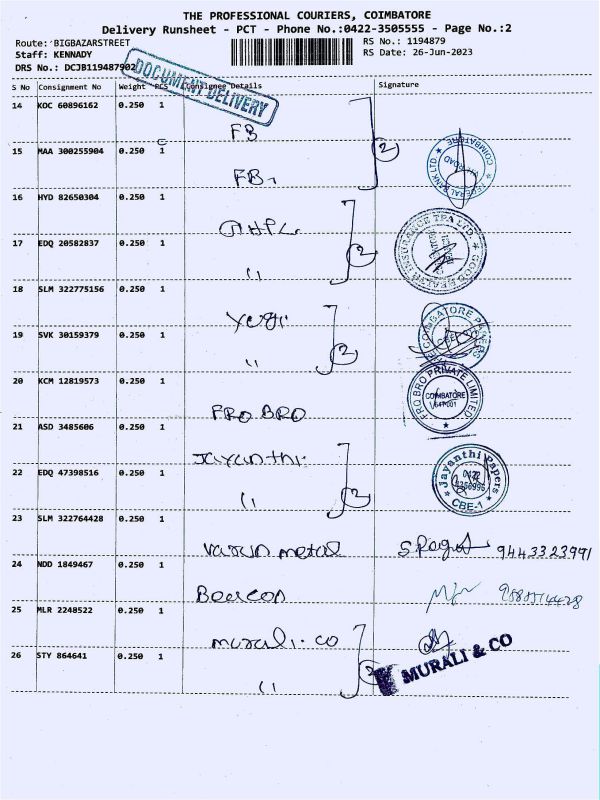 THE PROFESSIONAL COURIERS, COIMBATORE
Delivery Runsheet - PCT - Phone No.:0422-3505555 - Page No.:2
Route: BIGBAZARSTREET
RS No.: 1194879
Staff: KENNADY
RS Date: 26-Jun-2023
DRS No.: DCJB119487902
DOCUMENT DELIVERY
S No Consignment No Weight PCS Consignee Details Signature
14 KOC 60896162 0.250 1
FB
15 MAA 300255904 0.250 1
FB
2
FEDERAL BANK LTD COIMBATORE
16 HYD 82650304 0.250 1
GHPL
17 EDQ 20582837 0.250 1
"
2
GOOD HEALTH INSURANCE TPA LTD.
18 SLM 322775156 0.250 1
19 SVK 30159379 0.250 1
"
2
COIMBATORE PAPERS
20 KCM 12819573 0.250 1
FRO BRO
FRO BRO PRIVATE LIMITED
COIMBATORE
641001
21 ASD 3485606 0.250 1
Jayanthi
22 EDQ 47398516 0.250 1
"
2
Jayanthi Papers
0422
CBE-1
23 SLM 322764428 0.250 1
varun metal
9443323991
24 NDD 1849467 0.250 1
Beacon
25 MLR 2248522 0.250 1
murali.co
26 STY 864641 0.250 1
"
2
MURALI & CO